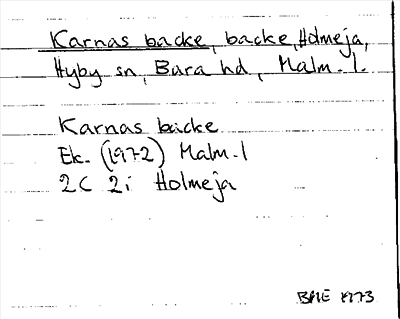 Karnas backe, backe, Holmeja,
Hyby sn, Bara hd, Malm. l.
Karnas backe
Ek. (1972) Malm. l
2C 2i Holmeja
BME 1973